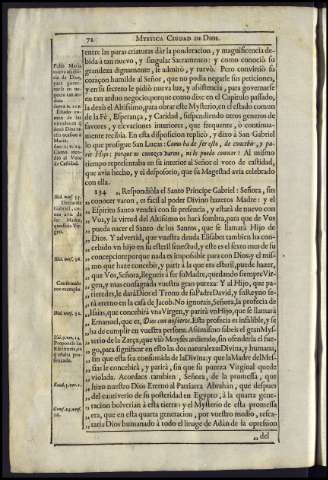 72 MYSTICA CIUDAD DE DIOS.
entre las puras criaturas dàr la ponderacion, y magnificencia de-
bida à tan nuevo, y singular Sacramento: y como conociò su
grandeza dignamente, le admirò, y turbò. Pero convirtiò su
coraçon humilde al Señor, que no podia negarle sus peticiones,
y en su secreto le pidiò nueva luz, y assistencia, para governarse
en tan arduo negocio; porque como dixe en el Capitulo passado,
la dexò el Altissimo, para obrar este Mysterio, en el estado comun
de la Fè, Esperança, y Caridad, suspendiendo otros generos de
favores, y elevaciones interiores, que frequente, ò continua-
mente recibia. En esta disposicion replicò, y dixo à San Gabriel
lo que prosigue San Lucas: Como ha de ser esto, de concebir, y pa-
rir Hijo; porque ni conozco varon, ni lo puedo conocer? Al mismo
tiempo representaba en su interior al Señor el voto de castidad,
que avia hecho, y el desposorio, que su Magestad avia celebrado
con ella.
134 „ Respondiòla el Santo Principe Gabriel: Señora, sin
„ conocer varon, es facil al poder Divino hazeros Madre: y el
„ Espiritu Santo vendrà con su presencia, y estarà de nuevo con
„ Vos, y la virtud del Altissimo os harà sombra, para que de Vos
„ pueda nacer el Santo de los Santos, que se llamarà Hijo de
„ Dios. Y advertid, que vuestra deuda Elisabet tambien ha con-
„ cebido vn hijo en su esteril senectud, y este es el sexto mes de su
„ concepcion; porque nada es impossible para con Dios; y el mis-
„ mo que haze concebir, y parir à la que era esteril, puede hazer,
„ que Vos, Señora, llegueis à ser su Madre, quedando siempre Vir-
„ gen, y mas consagrada vuestra gran pureza: Y al Hijo, que pa-
„ rieredes, le darà Dios el Trono de su Padre David, y su Reyno se-
„ rà eterno en la casa de Jacob. No ignorais, Señora, la profecia de
„ Isaias, que concebirà vna Virgen, y parirà vn Hijo, que se llamarà
„ Emanuel, que es, Dios con nosotros. Esta profecia es infalible, y se
„ ha de cumplir en vuestra persona. Assimismo sabeis el gran Mys-
„ terio de la Zarça, que viò Moyses ardiendo, sin ofenderla el fue-
„ go, para significar en esto las dos naturalezas Divina, y humana,
„ sin que esta sea consumida de la Divina; y que la Madre del Mes-
„ sias le concebirà, y parirà, sin que su pureza Virginal quede
„ violada. Acordaos tambien, Señora, de la promessa, que
„ hizo nuestro Dios Eterno al Patriarca Abrahàn, que despues
„ del cautiverio de su posteridad en Egypto, à la quarta gene-
„ racion bolverian à esta tierra: y el Mysterio de esta promessa
„ era, que en esta quarta generacion, por vuestro medio, resca-
„ taria Dios humanado à todo el linage de Adàn de la opression
„ del